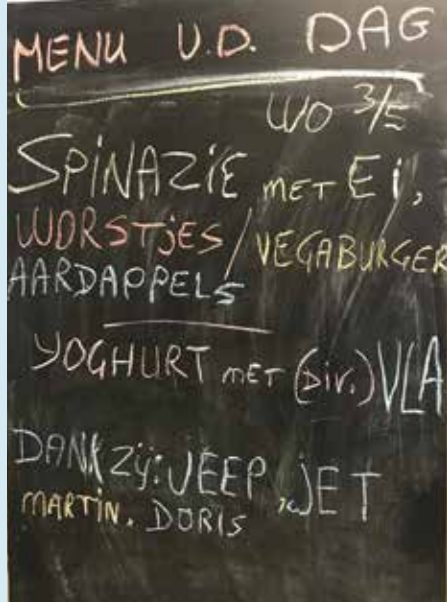 MENU V.D. DAG
WO 3/5
SPINAZIE MET Ei,
WORSTjES / VEGABURGER
AARDAPPELS
YOGHURT MET (DiV.) VLA
DANKZij: JEEP, JET
MARTiN. DORiS